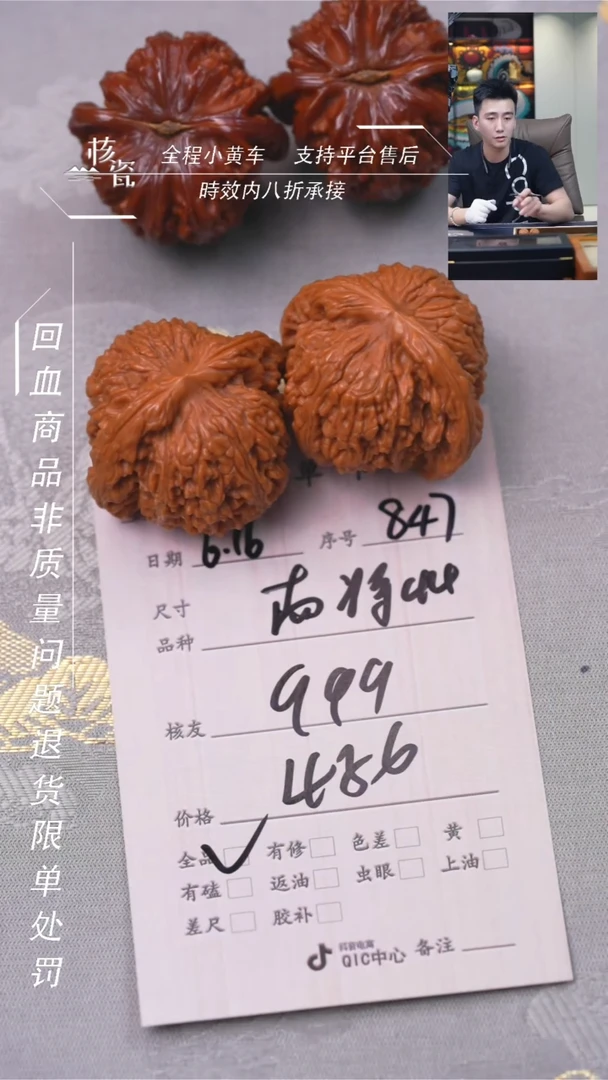 核瓷
全程小黄车 支持平台售后
時效内八折承接
回血商品非质量问题退货限单处罚
日期 6.16 序号 847
尺寸 南将
品种
核友 999
价格 486
全品 有修 色差 黄
有磕 返油 虫眼 上油
差尺 胶补
抖音电商
QIC中心 备注